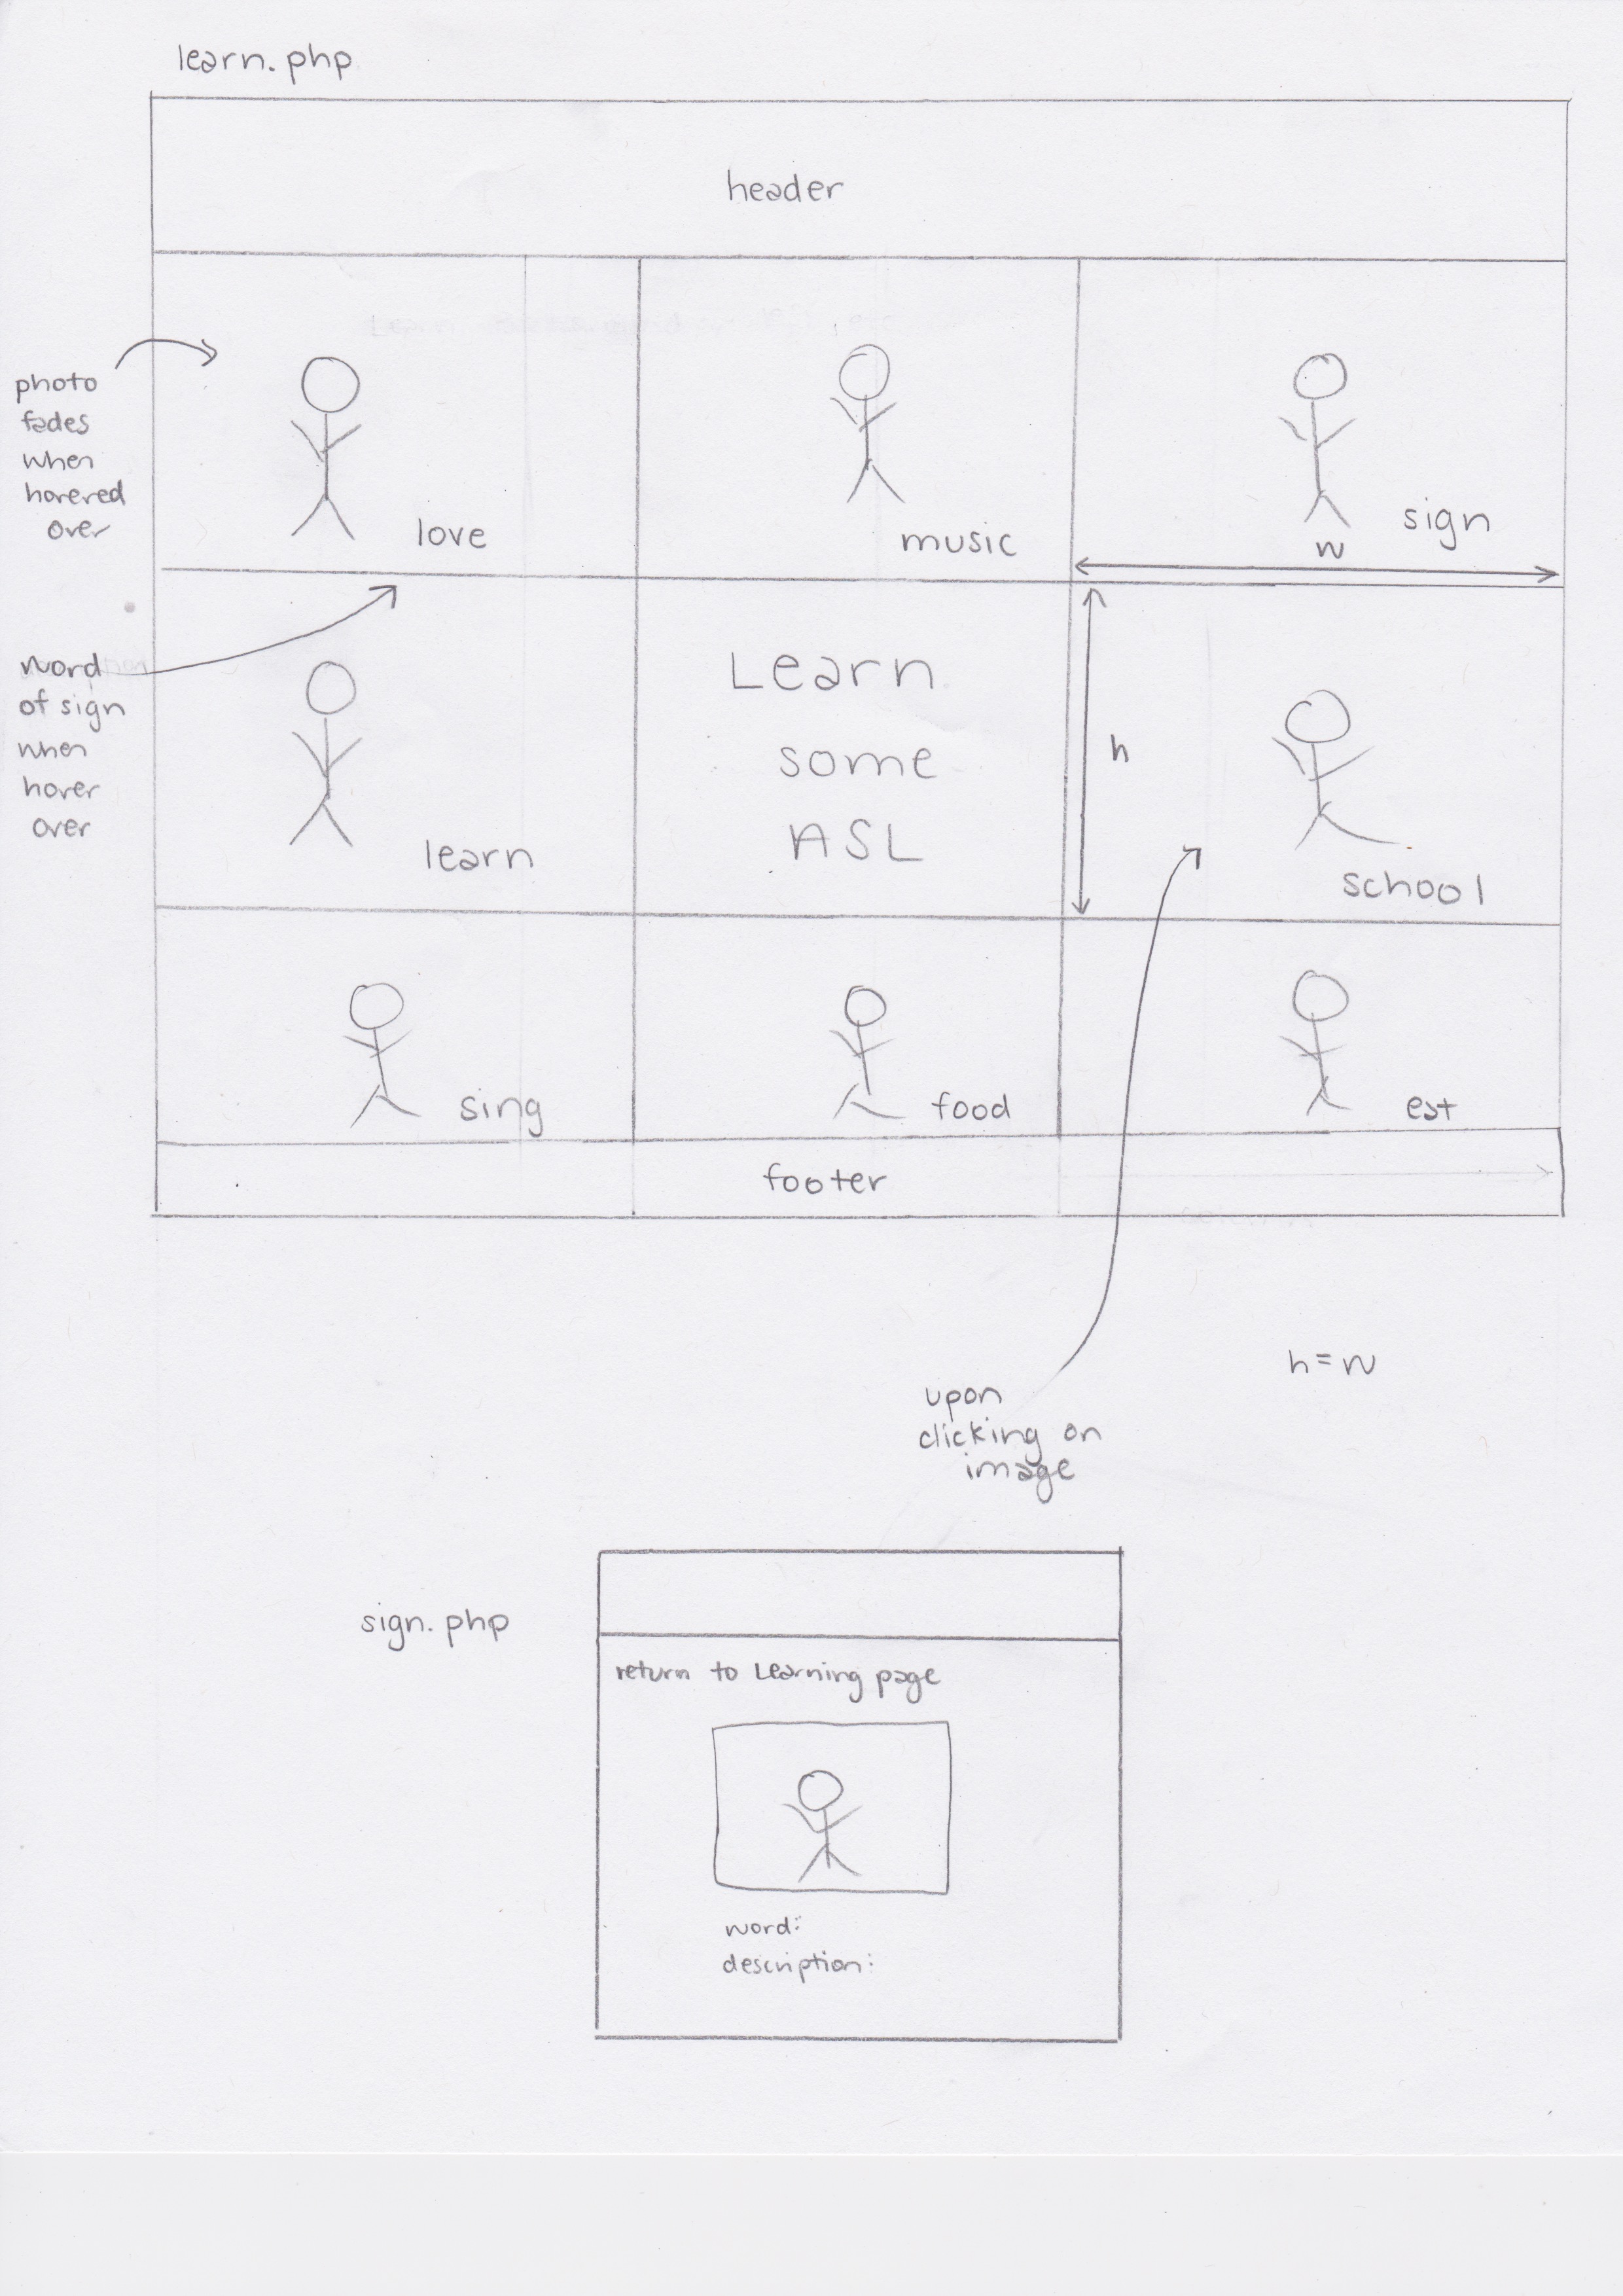 learn.php
header
photo
fades
when
hovered
over
love
music
sign
w
word
of sign
when
hover
over
learn
Learn
some
ASL
h
school
sing
food
eat
footer
h=w
upon
clicking on
image
sign.php
return to Learning page
word:
description: